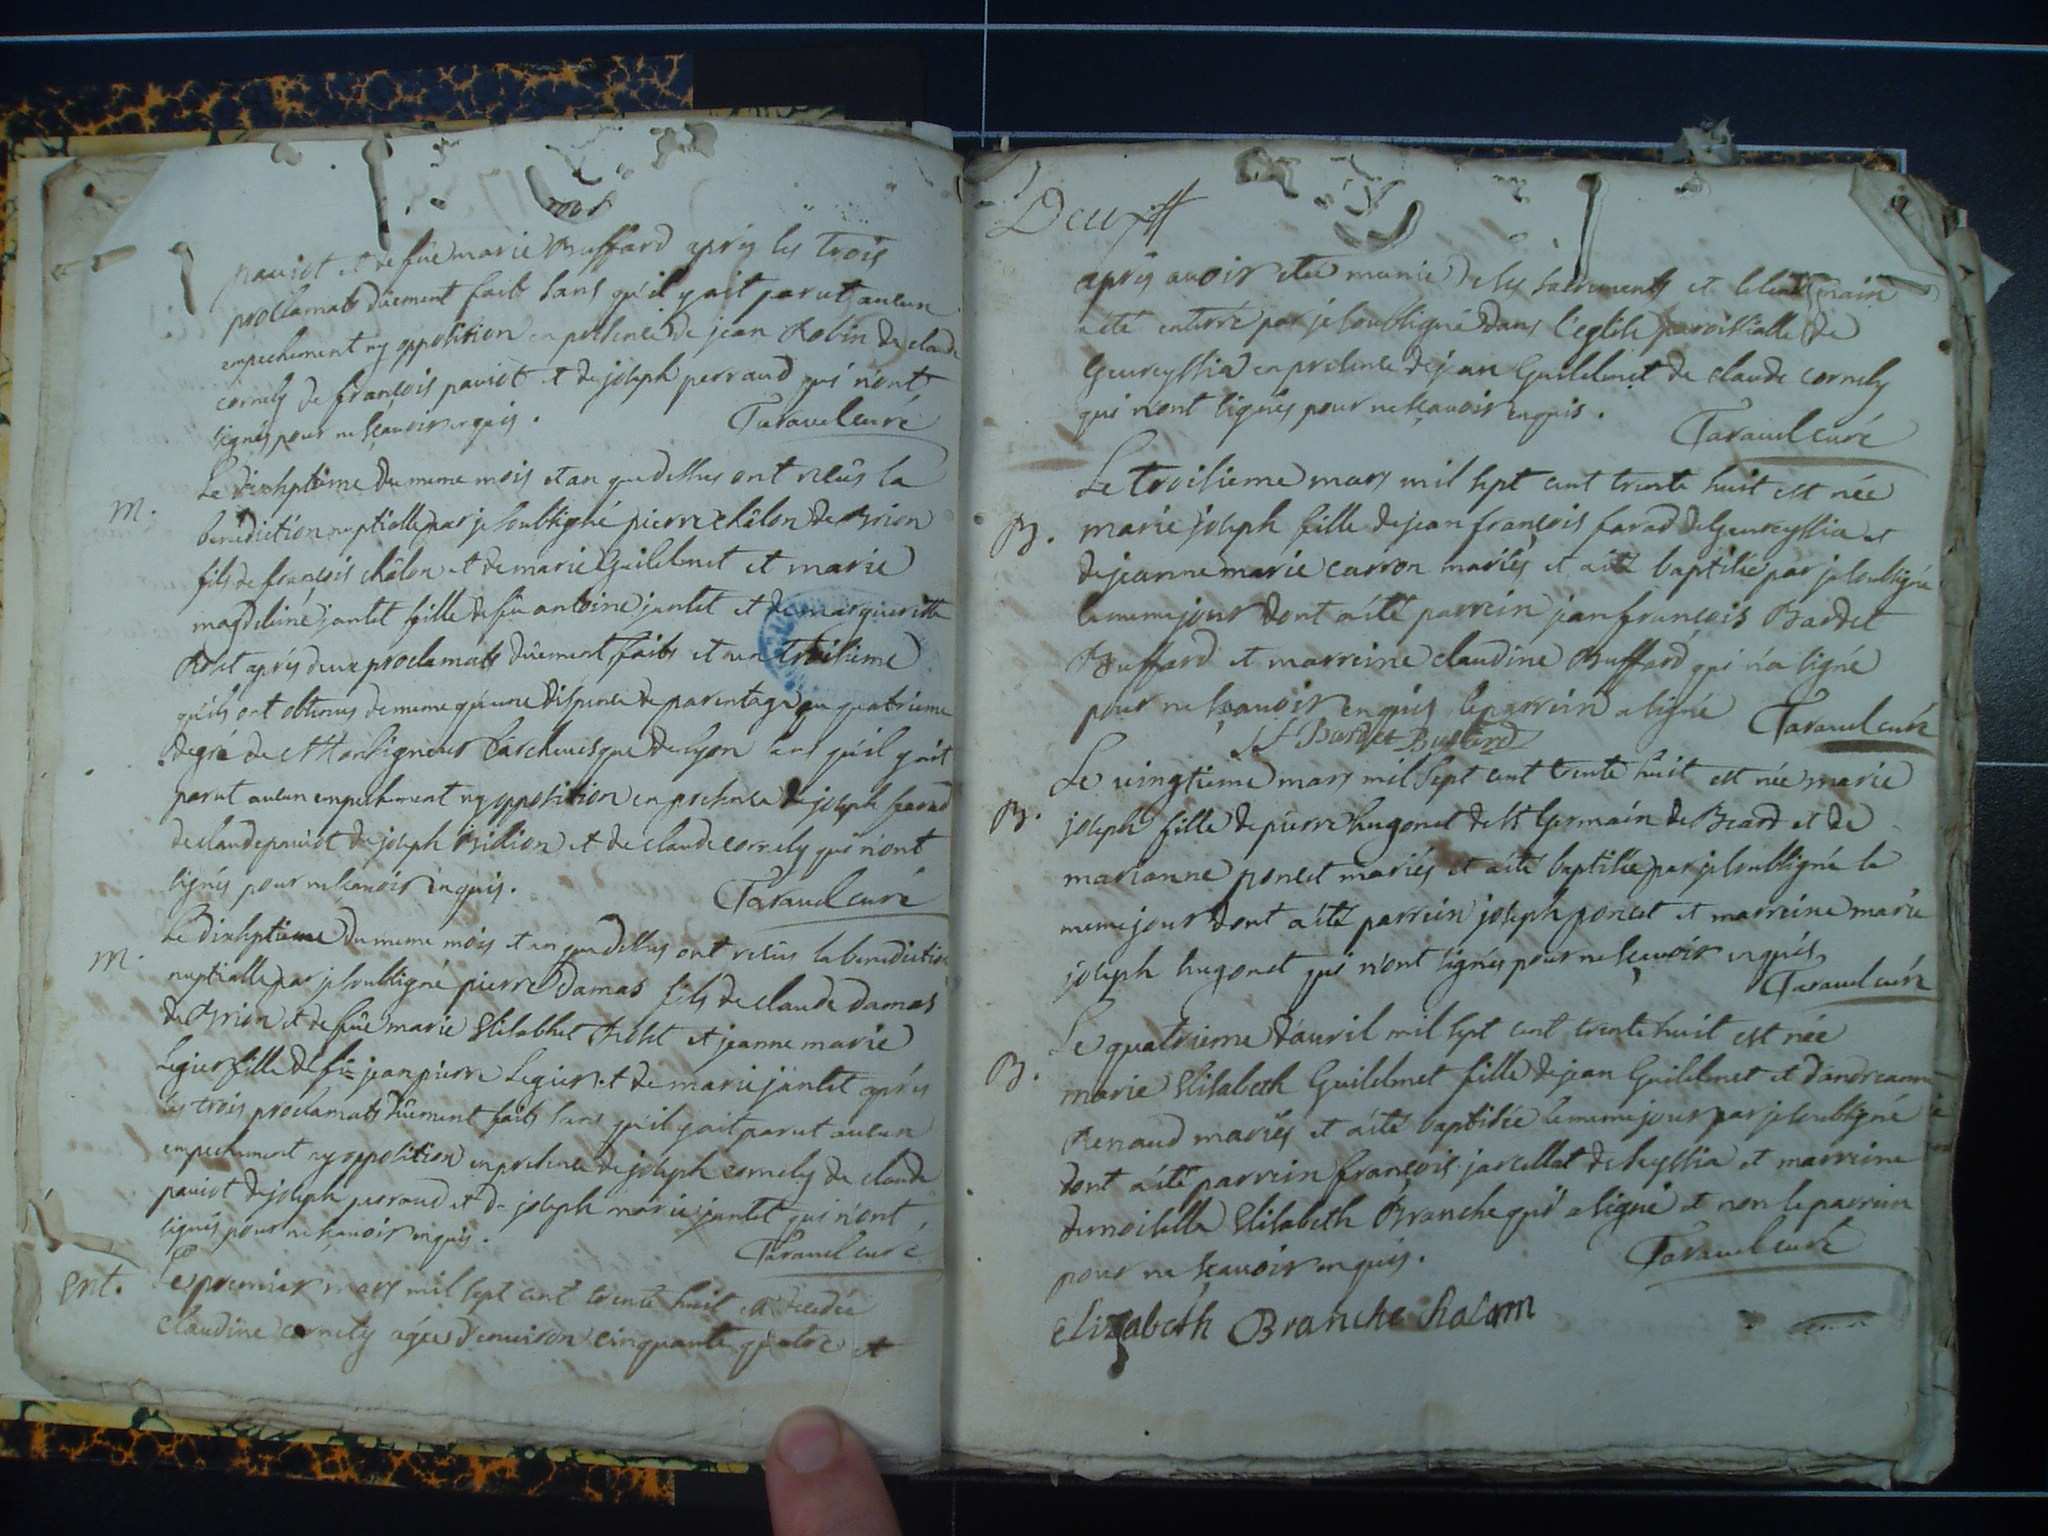 paviot et de fûe marie Buffard aprés les trois
proclamats dûement faits sans qu'il y ait parut aucun
empechement ny opposition en presence de jean Robin de claude
cornely de françois paviot et de joseph perraud qui n'ont
signés pour ne sçavoir enquis.
Taravel curé
Le dixseptiéme du meme mois et an que dessus ont reçûs la
m.
benediction nuptialle par je soubsigné pierre châlon de Brion
fils de françois châlon et de marie Guillelmet et marie
magdeleine jantet fille de fû antoine jantet et de marguerite
aprés deux proclamats dûement faits et un troisieme
qu'ils ont obtenus de meme qu'une dispence de parentage au quatrieme
degré de Monseigneur l'archevesque de Lyon sans qu'il y ait
parut aucun empechement ny opposition en presence de joseph farad
de claude paviot de joseph et de claude cornely qui n'ont
signés pour ne sçavoir enquis.
Taravel curé
Le dixseptieme du meme mois et an que dessus ont reçûs la benediction
m.
nuptialle par je soubsigné pierre Damas fils de claude Damas
de Brion et de fûe marie Elisabhet et jeanne marie
Legier fille de fû jean pierre Legier et de marie jantet aprés
les trois proclamats dûement faits sans qu'il y ait parut aucun
empechement ny opposition en presence de joseph cornely de claude
paviot de joseph perraud et de joseph marie jantet qui n'ont
signés pour ne sçavoir enquis.
Taravel curé
Ent.
Le premier mars mil sept cent trente huit est decedée
claudine cornely agée d'environ cinquante quatre et
Deux
aprés avoir eté munie de ses sacrements et le lendemain
a eté enterré par je soubsigné dans l'eglise paroissialle de
Geureyssia en presence de jean Guillelmet de claude cornely
qui n'ont signés pour ne sçavoir enquis.
Taravel curé
Le troisieme mars mil sept cent trente huit est née
B.
marie joseph fille de jean françois farad de Geureyssia et
de jeanne marie carron mariés et a eté baptisée par je soubsigné
le meme jour dont a eté parrein jean françois Bardet
Buffard et marreine claudine Buffard qui n'a signé
pour ne sçavoir enquis le parrein a signé
Taravel curé
J f Bardet Buffard
Le vingtieme mars mil sept cent trente huit est née marie
B.
joseph fille de pierre hugonet de St Germain de Beard et de
marianne poncet mariés et a eté baptisée par je soubsigné le
meme jour dont a eté parrein joseph poncet et marreine marie
joseph hugonet qui n'ont signés pour ne sçavoir enquis
Taravel curé
Le quatrieme d'avril mil sept cent trente huit est née
B.
marie Elisabeth Guillelmet fille de jean Guillelmet et d'andreanne
Renaud mariés et a eté baptisée le meme jour par je soubsigné
dont a eté parrein françois jarcellat de seyssia et marreine
demoiselle Elisabeth Branche qui a signé et non le parrein
pour ne sçavoir enquis.
Taravel curé
Elizabeth Branche